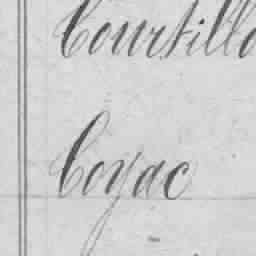 Courtill
Coyac